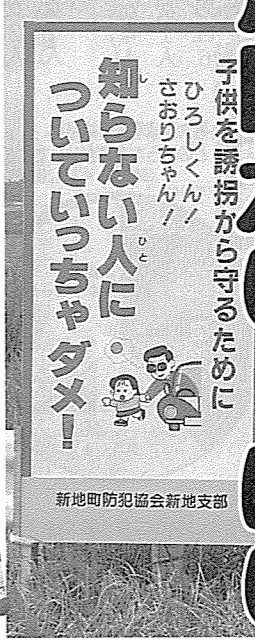 子供を誘拐から守るために
ひろしくん!
さおりちゃん!
知らない人に
ついていっちゃダメ!
新地町防犯協会新地支部